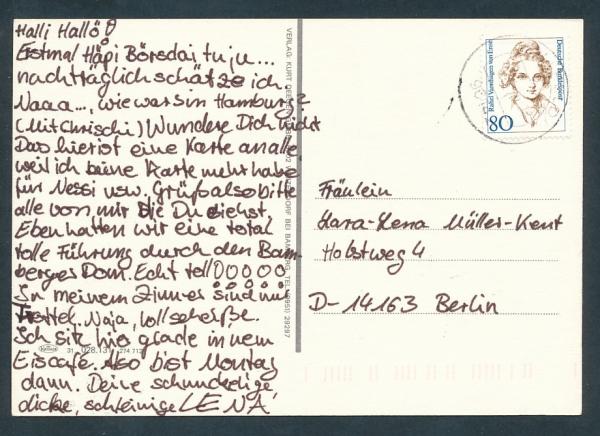 Halli Hallö
Erstmal Häpi Börsdai tu ju...
nachträglich schätze ich.
Naaa..., wie wars in Hamburg?
(Mit Chrischi) Wundere Dich nicht
Das hier ist eine Karte an alle,
weil ich keine Karte mehr habe
für Nessi usw. Grüß also bitte
alle von mir die Du siehst.
Eben hatten wir eine total
tolle Führung durch den Bam-
berger Dom. Echt toll
In meinem Zimmer sind nur
Trottel. Naja, voll scheiße.
Ich sitz hier grade in nem
Eiscafé. Also bist Montag
dann. Deine schnuddelige
dicke, schleimige LENA
VERLAG: KURT
BEI BAMBERG
29297
31 028.131 274 712
Deutsche Bundespost
Rahel Varnhagen von Ense
80
Fräulein
Lara-Lena Müller-Kent
Holstweg 4
D-14163 Berlin